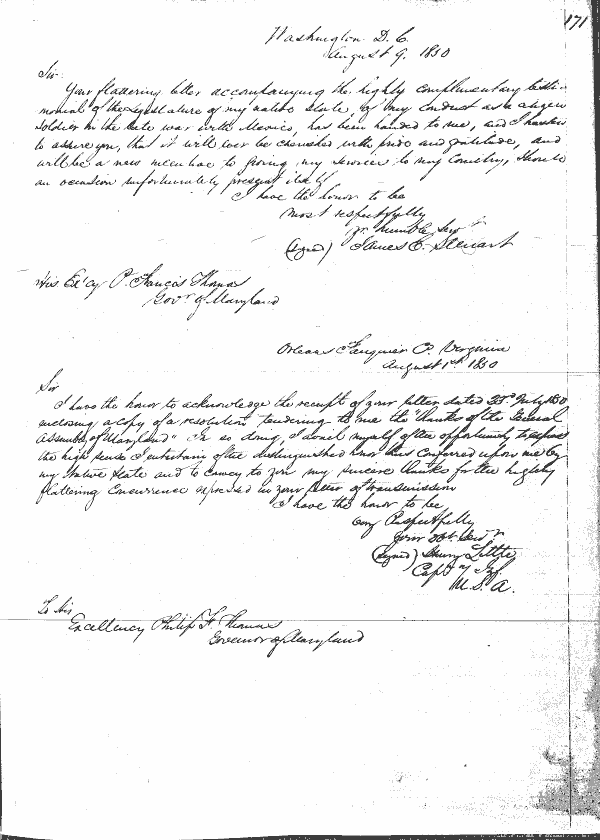 171
Washington D. C.
August 9. 1850
Sir
Your flattering letter accompanying the highly complimentary testi-
monial of the Legislature of my native State, of my conduct as a citizen
soldier in the late war with Mexico, has been handed to me, and I hasten
to assure you, that it will ever be cherished with pride and gratitude, and
will be a new incentive to giving my services to my Country, should
an occasion unfortunately present itself
I have the honor to be
most respectfully
yr humble Servt
(signed) James E. Stewart
His Excy P. Francis Thomas
Govr of Maryland
Orleans Fauquier Co. Virginia
August 1st 1850
Sir
I have the honor to acknowledge the receipt of your letter dated July 1850
enclosing a copy of a resolution tendering to me the "thanks of the General
Assembly of Maryland" In so doing, I avail myself of the opportunity to express
the high sense I entertain of the distinguished honor thus conferred upon me by
my Native State and to convey to you my sincere thanks for the highly
flattering concurrence expressed in your letter of transmission
I have the honor to be
very Respectfully
your obt. Servt
(signed) Henry Little
Capt 7 Inf.
U. S. A.
To His
Excellency Philip F. Thomas
Governor of Maryland